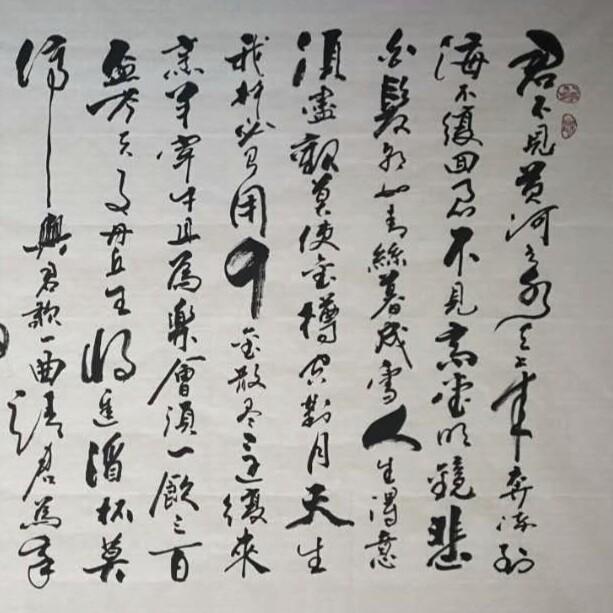 君不見黄河之水天上来奔流到
海不復回君不見高堂明鏡悲
白髮朝如青絲暮成雪人生得意
須盡歡莫使金樽空對月天生
我材必有用千金散尽還復來
烹羊宰牛且為樂會須一飲三百
盃岑夫子丹丘生將進酒杯莫
停與君歌一曲請君為我